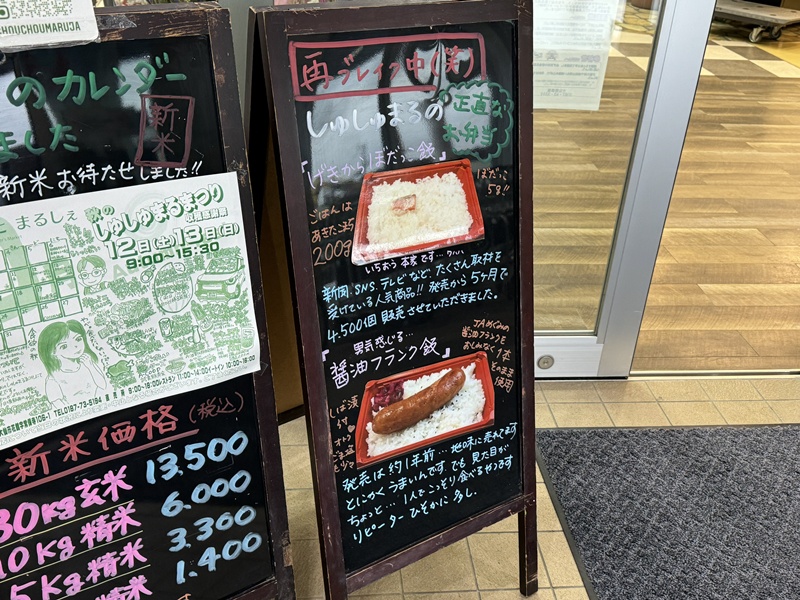 CHOUCHOUMARUJA
のカレンダー
ました
新米
新米お待たせしました!!
まるしぇ
秋の
しゅしゅまるまつり
収穫感謝祭
12日(土)13日(日)
9:00〜15:30
TEL0187-73-5164
新米価格(税込)
30kg玄米 13,500
10kg精米 6,000
5kg精米 3,300
精米 1,400
再ブレイク中(笑)
しゅしゅまるの
正直な
お弁当
「げきからぼだっこ飯」
ぼだっこ
5g!!
ごはんは
あきたこまち
200g
いちおう本家です…
新聞、SNS、テレビなど、たくさん取材を
受けている人気商品!! 発売から5ヶ月で
4,500個販売させていただきました。
男気感じる…
「醤油フランク飯」
JAめぐみの
醤油フランクを
おしみなく1本
そのまま
使用
しば漬
付
オトク
ごま塩
発売は約1年前… 地味に売れてます
とにかくうまいんですでも見た目が
ちょっと… 1人でこっそり食べるやつです
リピーターひそかに多し.